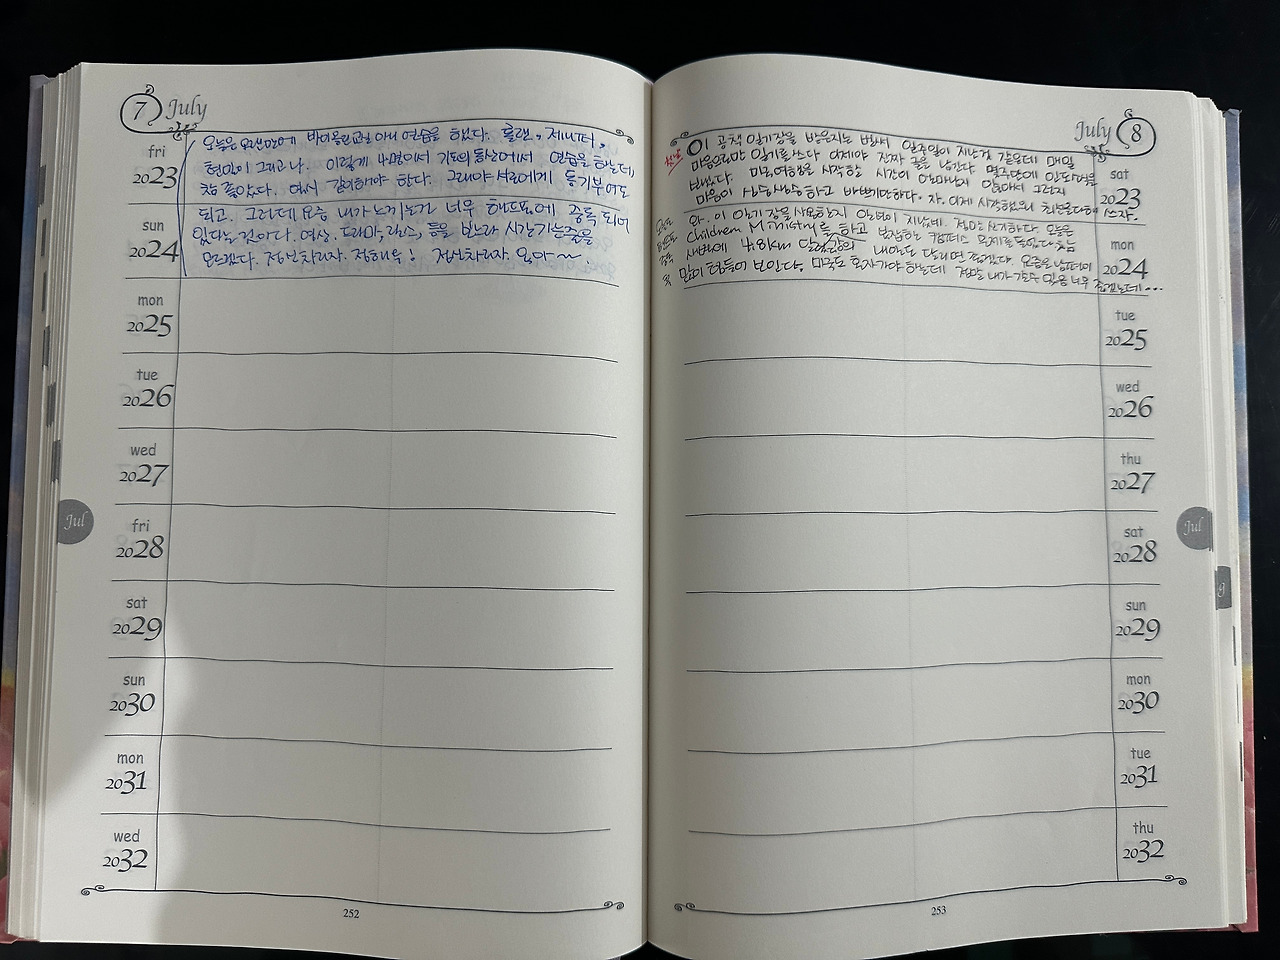 7 July
fri
2023
오늘은 오랜만에 바이올린교실 아이 연습을 했다. 제니퍼,
현민이 그리고 나. 이렇게 4명이서 기도의 동산에서 연습을 하는데
참 좋았다. 역시 같이해야 한다. 그래야 서로에게 동기부여도
sun
2024
되고. 그런데 요즘 내가 느끼는건 너무 핸드폰에 중독 되어
있다는 것이다. 영상. 드라마, 등을 보느라 시간가는줄을
모르겠다. 정신차리자. 정신차리자. 으아~.
mon
2025
tue
2026
wed
2027
fri
2028
Jul
sat
2029
sun
2030
mon
2031
wed
2032
252
July 8
이 공책 일기장을 받은지는 벌써 일주일이 지난것 같은데 매일
마음으로만 일기를쓰다 이제야 진짜 글을 남긴다.
보냈다. 미국여행을 시작할 시간이 얼마남지 않아서 그런지
마음이 싱숭생숭하고 바쁘기만하다. 자. 이제 시작했으니 최선을다해 쓰자.
sat
2023
와. 이 일기장을 사용한지 일년이 지났네. 정말 신기하다. 오늘은
Children Ministry를 하고
새벽에 4.8km 내일도 달리면 좋겠다. 요즘은 남편이
많이 힘들어 보인다. 미국도 혼자가야 하는데 정말 내가 갈수 있음 너무 좋겠는데...
mon
2024
tue
2025
wed
2026
thu
2027
sat
2028
Jul
sun
2029
9
mon
2030
tue
2031
thu
2032
253